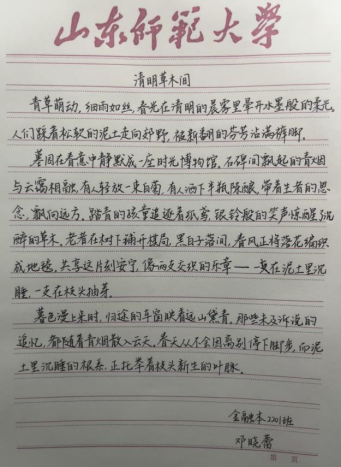 山东师范大学
清明草木间
青草萌动，细雨如丝，春光在清明的晨雾里晕开水墨般的柔光。
人们踩着松软的泥土走向郊野，被新翻的芬芳沾满裤脚。
墓园在春意中静默成一座时光博物馆，石碑间飘起的青烟
与云霭相融，有人轻放一束白菊，有人洒下半瓶陈酿，带着生者的思
念，飘向远方。踏青的孩童追逐着纸鸢，银铃般的笑声惊醒了沉
醉的草木。老者在树下铺开棋局，黑白子落间，春风正将落花编织
成地毯，共享这片刻安宁，像两支交织的乐章——一支在泥土里沉
睡，一支在枝头抽芽。
暮色漫上来时，归途的车窗映着远山黛青。那些未及诉说的
追忆，都随着青烟散入云天。春天从不会因离别停下脚步，而泥
土里沉睡的根系，正托举着枝头新生的叶脉。
金融本2201班
邓晓蕾
第 页